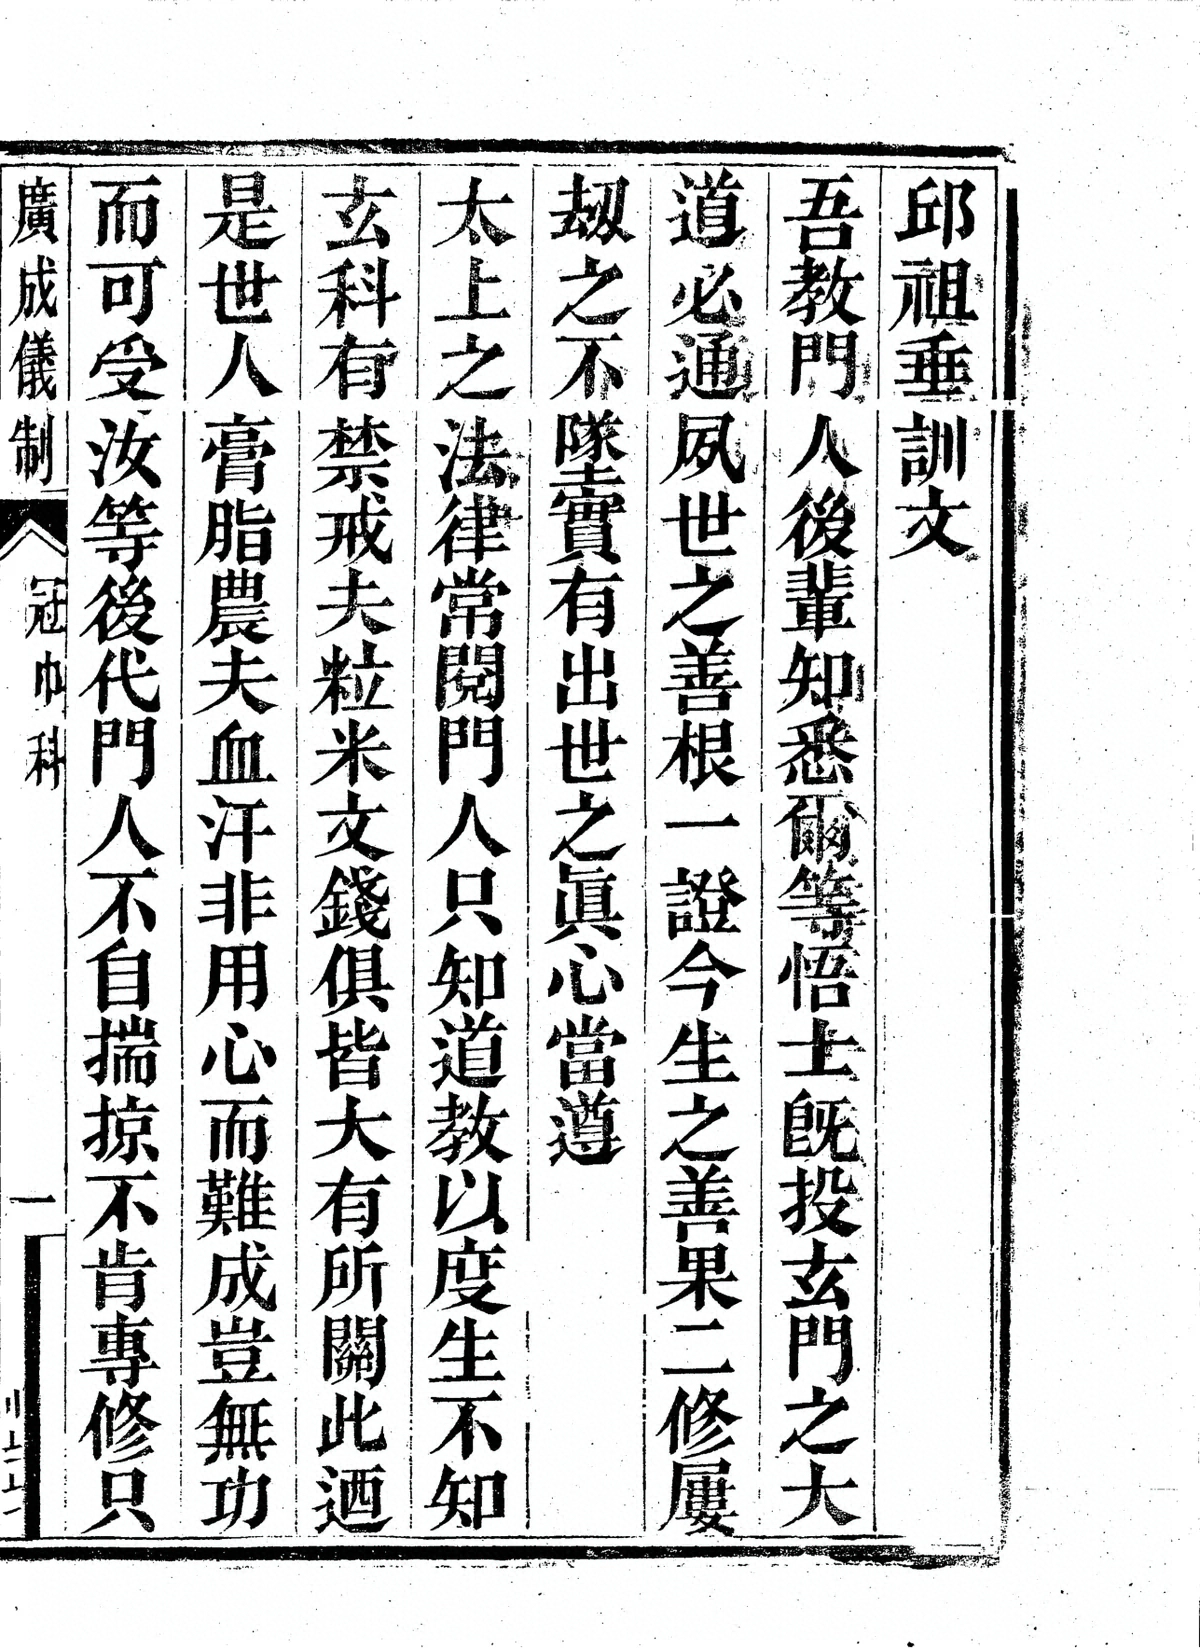 邱祖垂訓文
吾教門人後輩知悉爾等悟士旣投玄門之大
道必通夙世之善根一證今生之善果二修屢
刼之不墜實有出世之眞心當遵
太上之法律常閱門人只知道教以度生不知
玄科有禁戒夫粒米文錢俱皆大有所關此迺
是世人膏脂農夫血汗非用心而難成豈無功
而可受汝等後代門人不自揣掠不肯專修只
廣成儀制 冠巾科 一